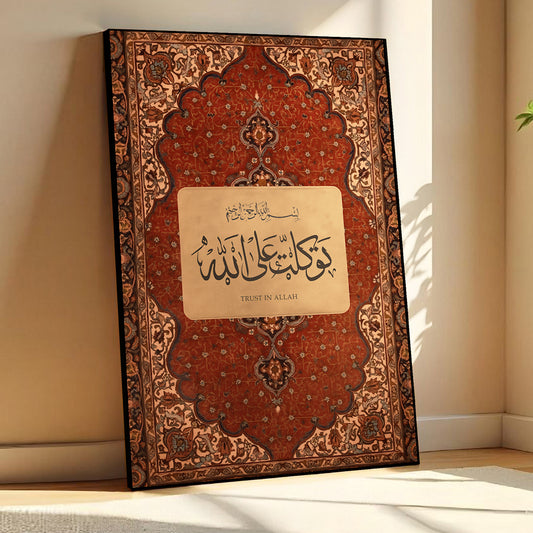 بسم الله الرحمن الرحيم
توكلت على الله
TRUST IN ALLAH